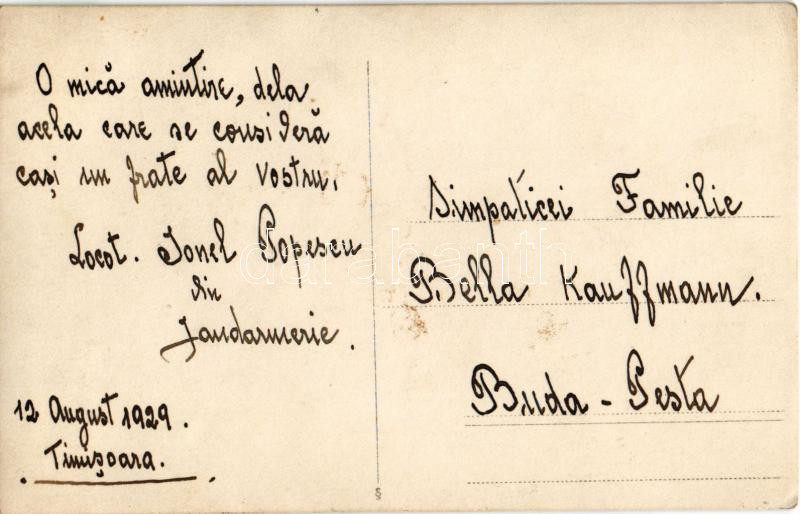 O mică amintire, dela
acela care se consideră
cași un frate al vostru.
Locot. Ionel Popescu
din
Jandarmerie.
12 August 1929.
Timișoara.
Simpaticei Familie
Bella Kauffmann.
Buda - Pesta
darabanth